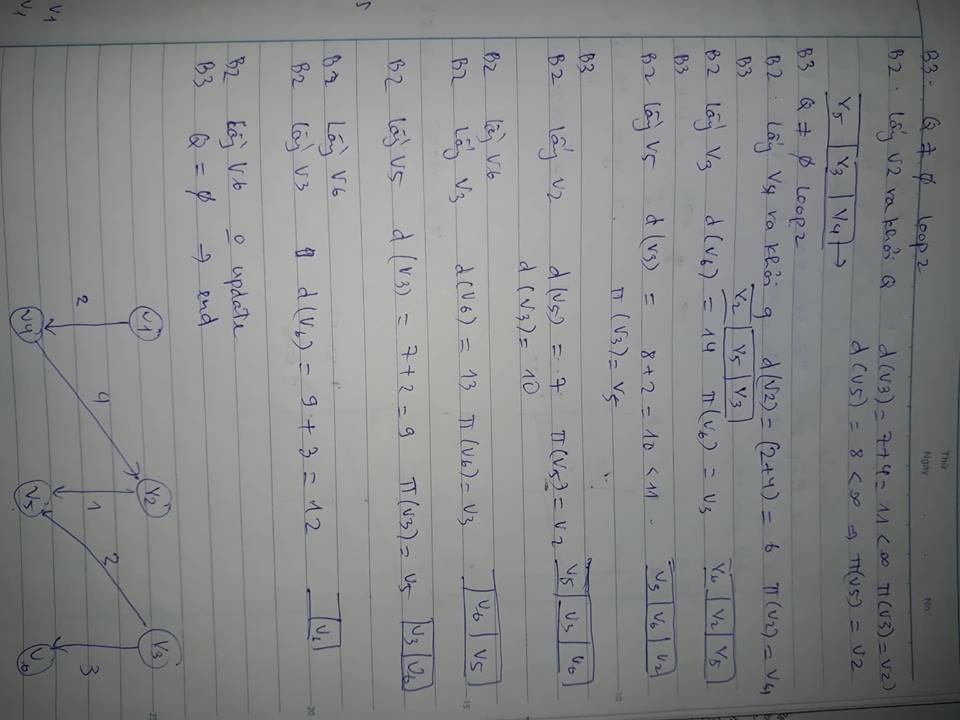 Thứ
Ngày No.
B3. Q ≠ ∅ loop 2
B2. Lấy V2 ra khỏi Q d(V3) = 7+4 = 11 < ∞ π(V3) = V2)
d(V5) = 8 < ∞ ⇒ π(V5) = V2
V5 | V3 | V4 →
B3 Q ≠ ∅ Loop 2
B2. Lấy V4 ra khỏi q d(V2) = (2+4) = 6 π(V2) = V4
B3 V2 | V5 | V3
B2 Lấy V3 d(V6) = 14 π(V6) = V3 V6 | V2 | V5
B3
B2 lấy V5 d(V3) = 8+2 = 10 < 11 V3 | V6 | V2
10
π(V3) = V5
B3
B2 lấy V2 d(V5) = 7 π(V5) = V2 V5 | V3 | V6
d(V3) = 10
B2 lấy V6
B2 lấy V3 d(V6) = 13 π(V6) = V3 V6 | V5
15
B2 lấy V5 d(V3) = 7+2 = 9 π(V3) = V5 V3 | V6
5
B2 Lấy V6
B2 lấy V3 d(V6) = 9 + 3 = 12 V6
20
B2 Lấy V6 o update
B3 Q = ∅ → end
V1 V2 V3
25
2 4 1 2 3
V1
V4 V5 V6
V1